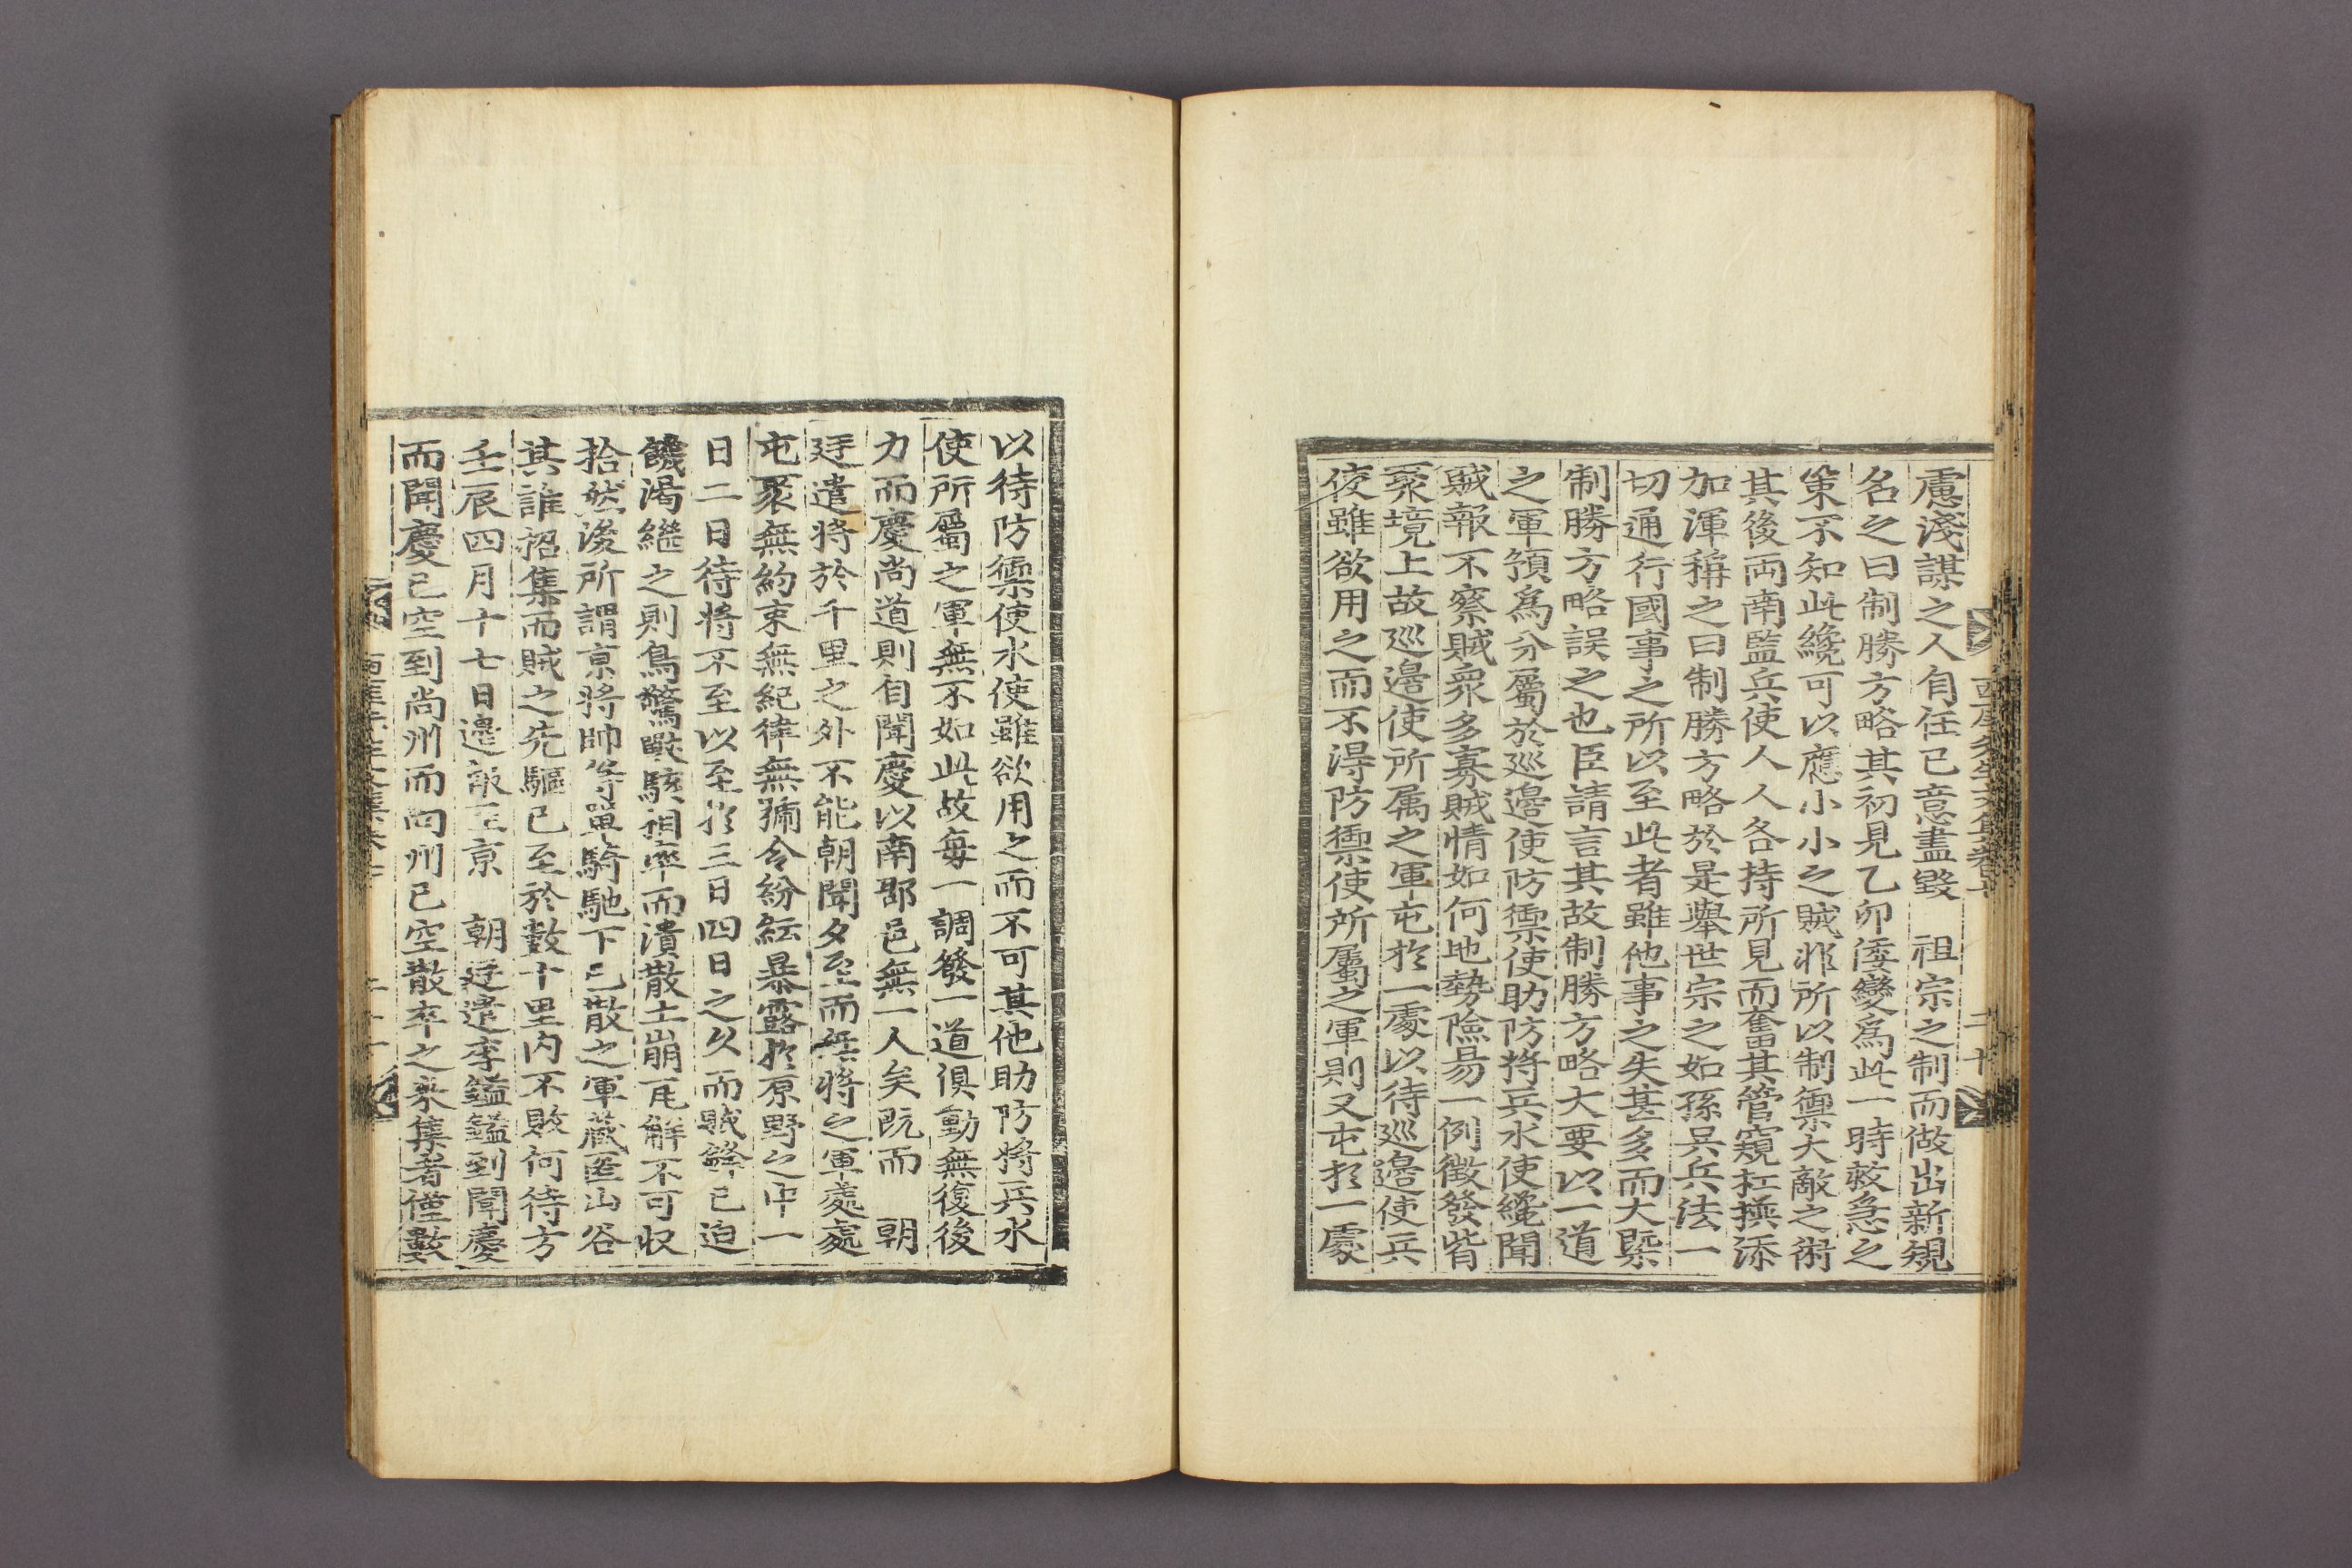 西厓先生文集卷
二十
慮淺謀之人自任己意盡毀 祖宗之制而做出新規
名之曰制勝方略其初見乙卯倭變爲此一時救急之
策不知此纔可以應小小之賊非所以制禦大敵之術
其後兩南監兵使人人各持所見而奮其管窺杜撰添
加渾稱之曰制勝方略於是擧世宗之如孫吳兵法一
切通行國事之所以至此者雖他事之失甚多而大槩
制勝方略誤之也臣請言其故制勝方略大要以一道
之軍預爲分屬於巡邊使防禦使助防將兵水使纔聞
賊報不察賊衆多寡賊情如何地勢險易一例徵發皆
聚境上故巡邊使所属之軍屯於一處以待巡邊使兵
使雖欲用之而不得防禦使所屬之軍則又屯於一處
以待防禦使水使雖欲用之而不可其他助防將兵水
使所屬之軍無不如此故每一調發一道俱動無復後
力而慶尚道則自聞慶以南郡邑無一人矣旣而 朝
廷遣將於千里之外不能朝聞夕至而無將之軍處處
屯聚無約束無紀律無號令紛紜暴露於原野之中一
日二日待將不至以至於三日四日之久而賊鋒已迫
饑渴繼之則鳥驚獸駭相率而潰散土崩瓦解不可收
拾然後所謂京將帥等單騎馳下已散之軍藏匿山谷
其誰招集而賊之先驅已至於數十里內不敗何待方
壬辰四月十七日邊報至京 朝廷遣李鎰鎰到聞慶
而聞慶已空到尚州而尙州已空散卒之來集者僅數
二十一